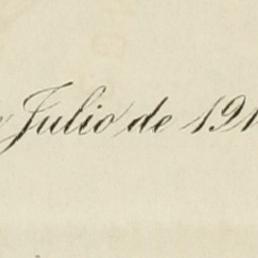 Julio de 191